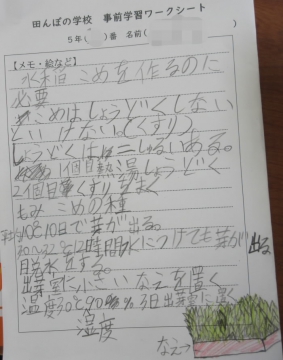 田んぼの学校 事前学習ワークシート
5年( )番 名前(
【メモ・絵など】
水稲 こめを作るのに
必要
こめはしょうどくしない
といけない。(くすり)
しょうどくは二しゅるいある。
1個目熱湯しょうどく
2個目くすり
もみ こめの種
10℃10日で芽が出る。
30~32℃12時間水につけても芽が出る
脱水をする。
出芽室に小さいなえを置く
温度30℃90% 3日出芽室に置く
湿度
なえ→